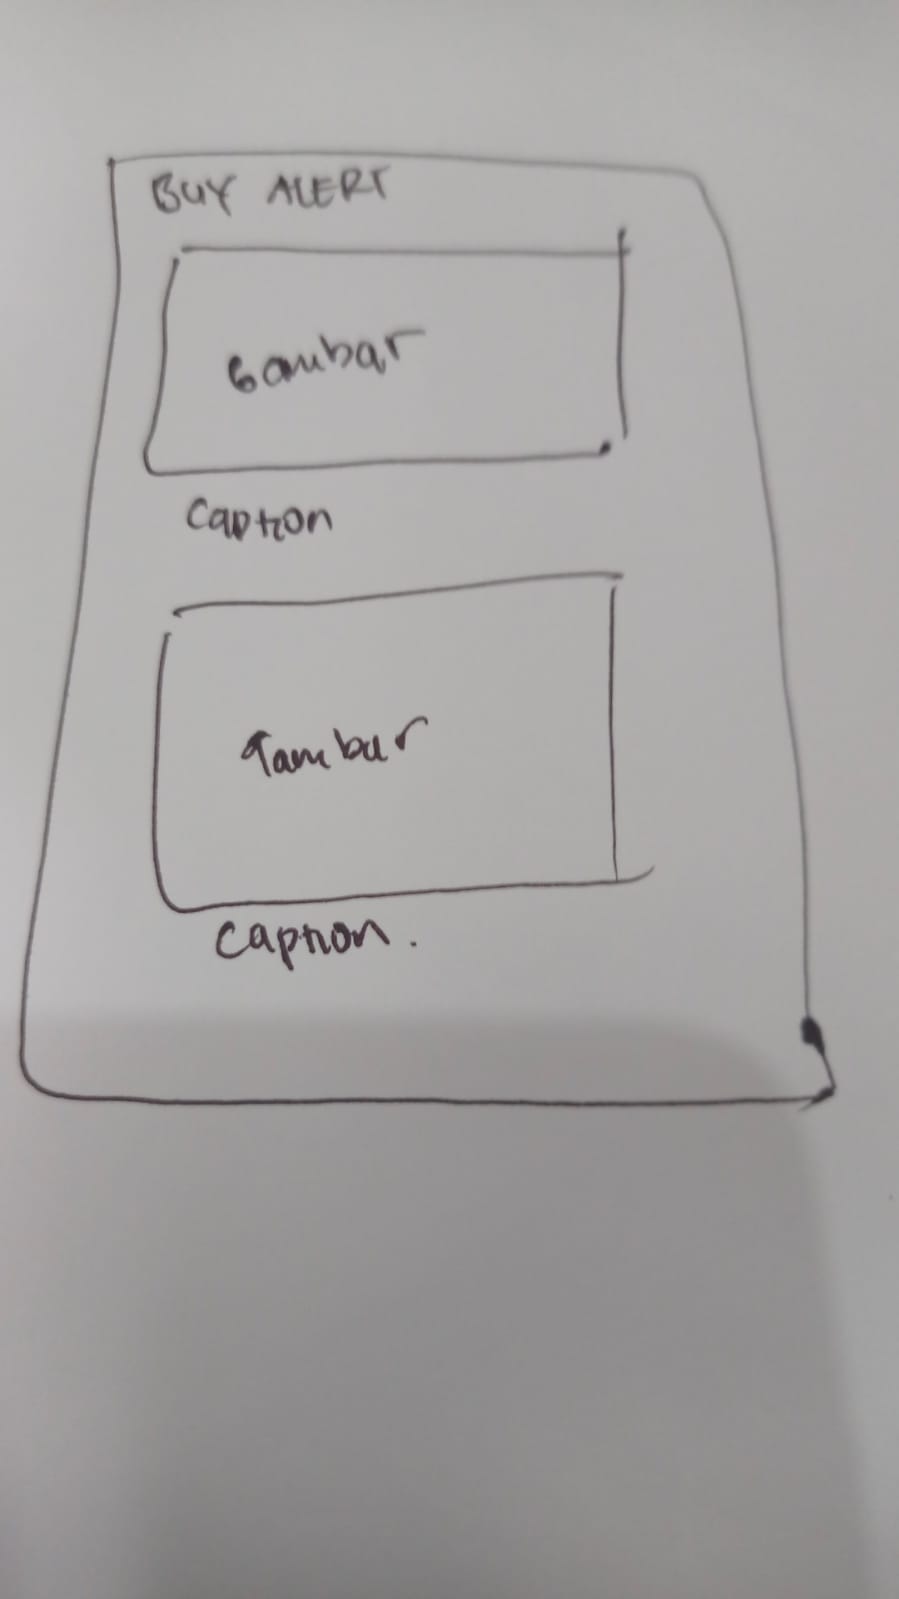 BUY ALERT
Gambar
Caption
Gambar
Caption.